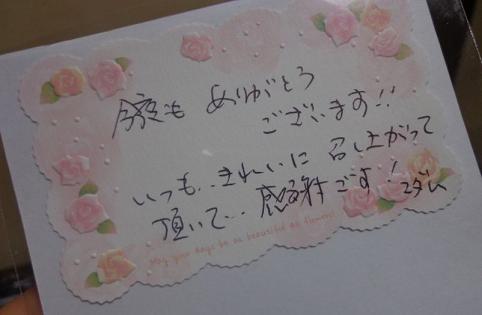 今度も ありがとう
ございます!!
いつも‥きれいに 召し上がって
頂いて… 感謝です!
マダム
May your days be as beautiful as flowers!